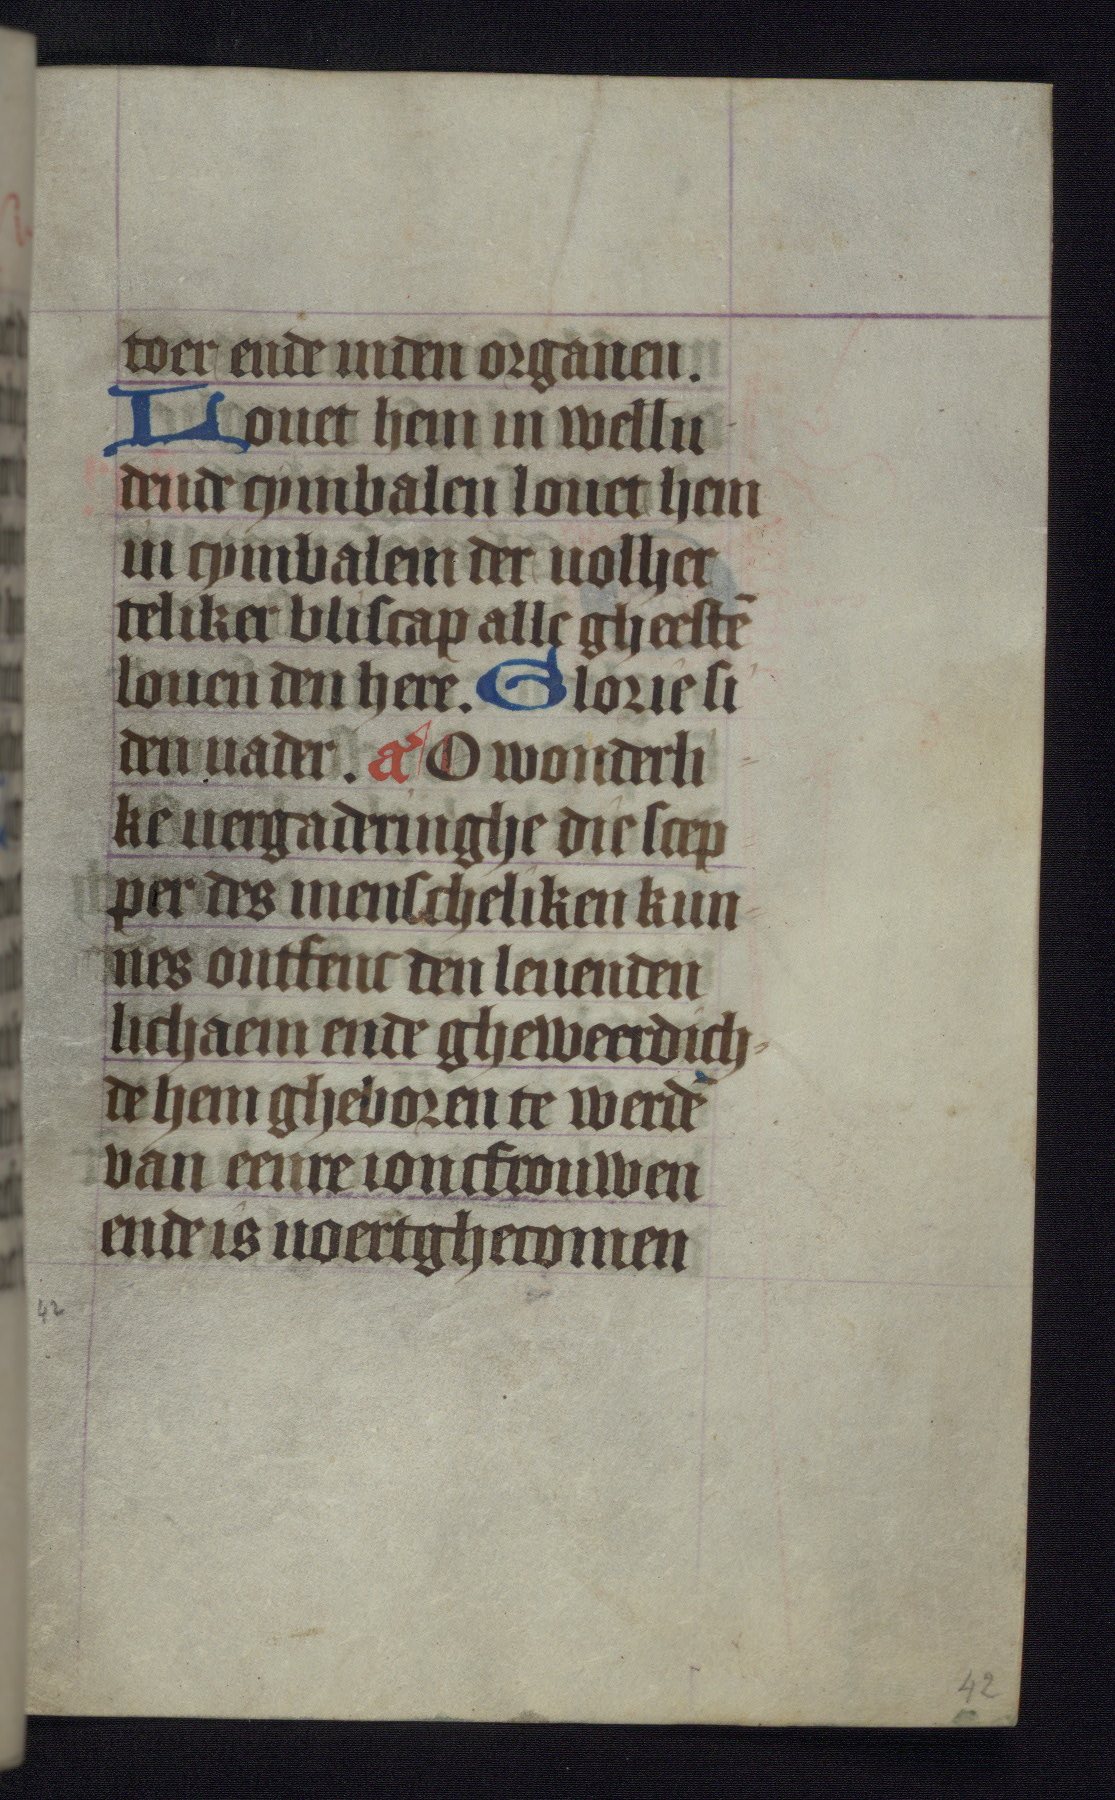 coer ende inden organen.
Louet hem in wellu
dende cymbalen louet hem
in cymbalem der uolher
teliker bliscap alle gheestē
louen den here. Glorie si
den uader. aͤ O wonderli
ke uergaderinghe die scep
per des menscheliken kun
nes ontfenc den leuenden
lichaem ende gheweerdich
de hem gheboren te werdē
van eenre ioncfrouwen
ende is uoertghecomen
42
42